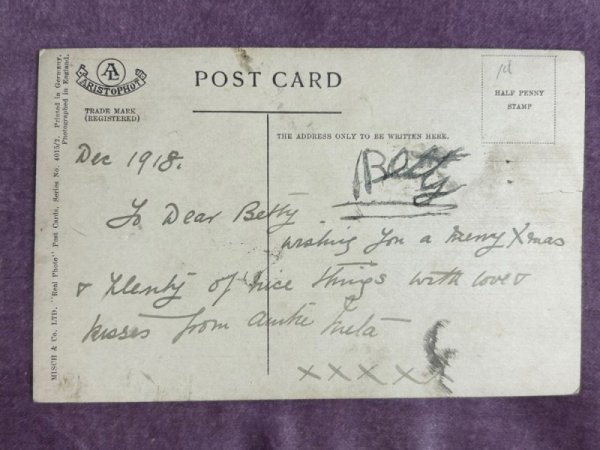 AL
ARISTOPHOT
TRADE MARK
(REGISTERED)
POST CARD
1d
HALF PENNY
STAMP
MISCH & Co. LTD. "Real Photo" Post Cards, Series No. 4015/2. Printed in Germany.
Photographed in England.
THE ADDRESS ONLY TO BE WRITTEN HERE.
Betty
Dec 1918.
To Dear Betty
wishing you a merry Xmas
& plenty of nice things with love &
kisses from Auntie
XXXXX